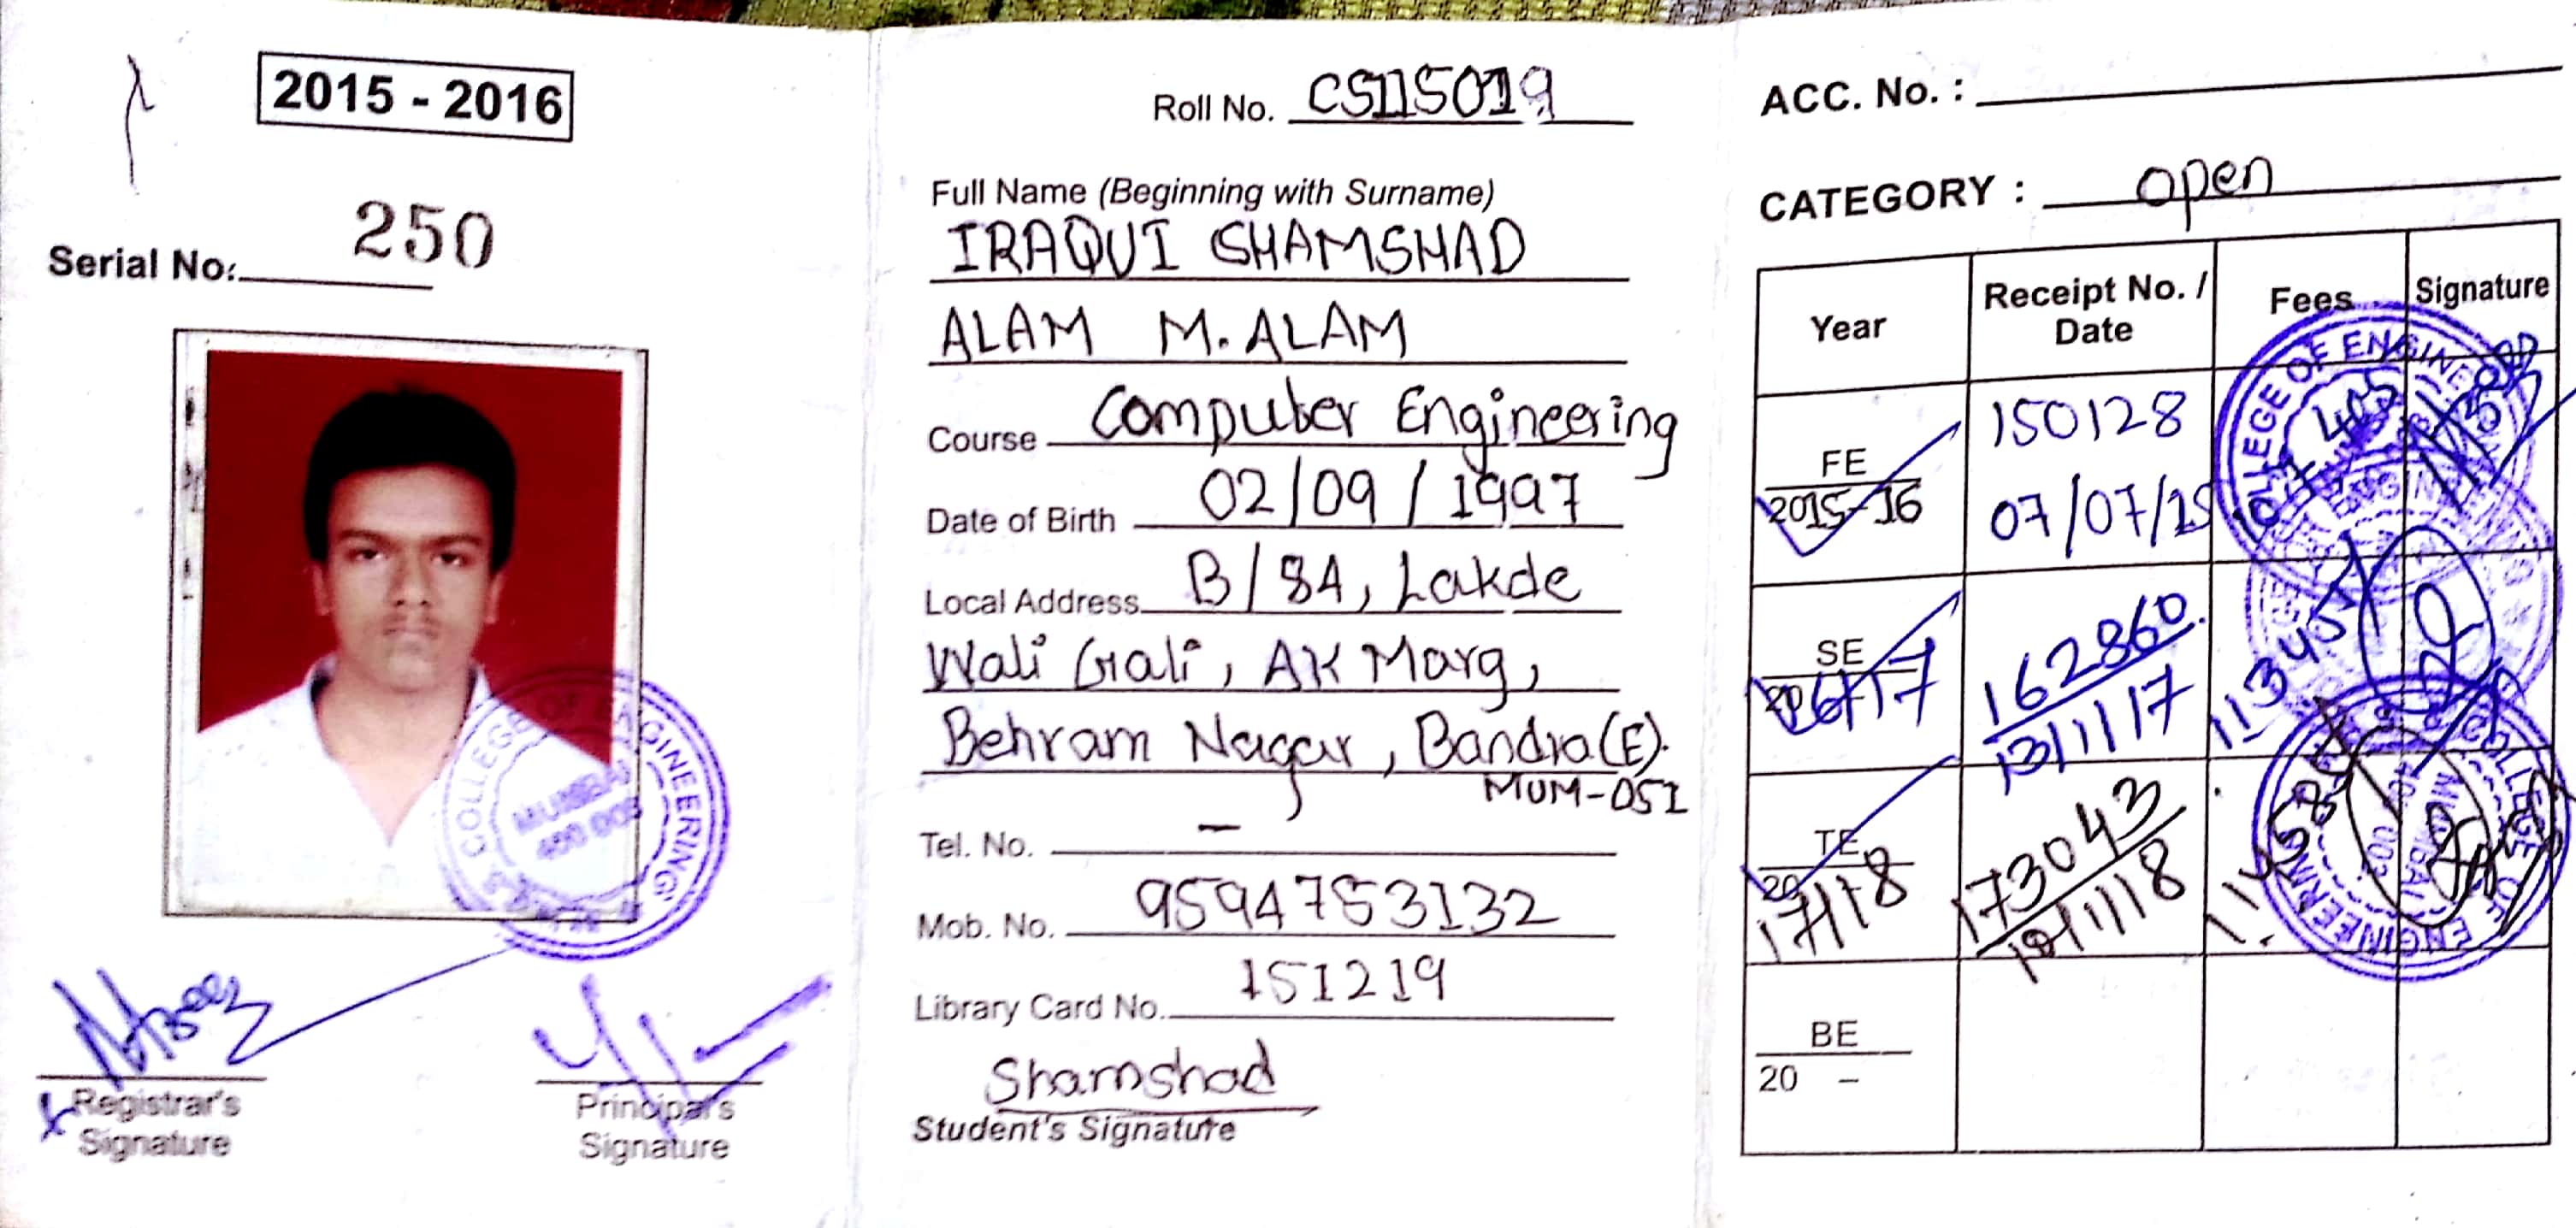 2015 - 2016
Serial No: 250
COLLEGE OF ENGINEERING
MUMBAI
400 008
Registrar's
Signature
Principal's
Signature
Roll No. CS115019
Full Name (Beginning with Surname)
IRAQUI SHAMSHAD
ALAM M. ALAM
Course Computer Engineering
Date of Birth 02/09/1997
Local Address B/84, Lakde
Wali Gali, AK Marg,
Behram Nagar, Bandra(E).
MUM-051
Tel. No. –
Mob. No. 9594753132
Library Card No. 151219
Shamshad
Student's Signature
ACC. No. :
CATEGORY : open
Year Receipt No. / Date Fees Signature
FE 2015-16 150128 07/07/15
SE 2016/17 162860 13/1/17
TE 2017/18 173043
BE 20 –
COLLEGE OF ENGINEERING
COLLEGE OF ENGINEERING
MUMBAI